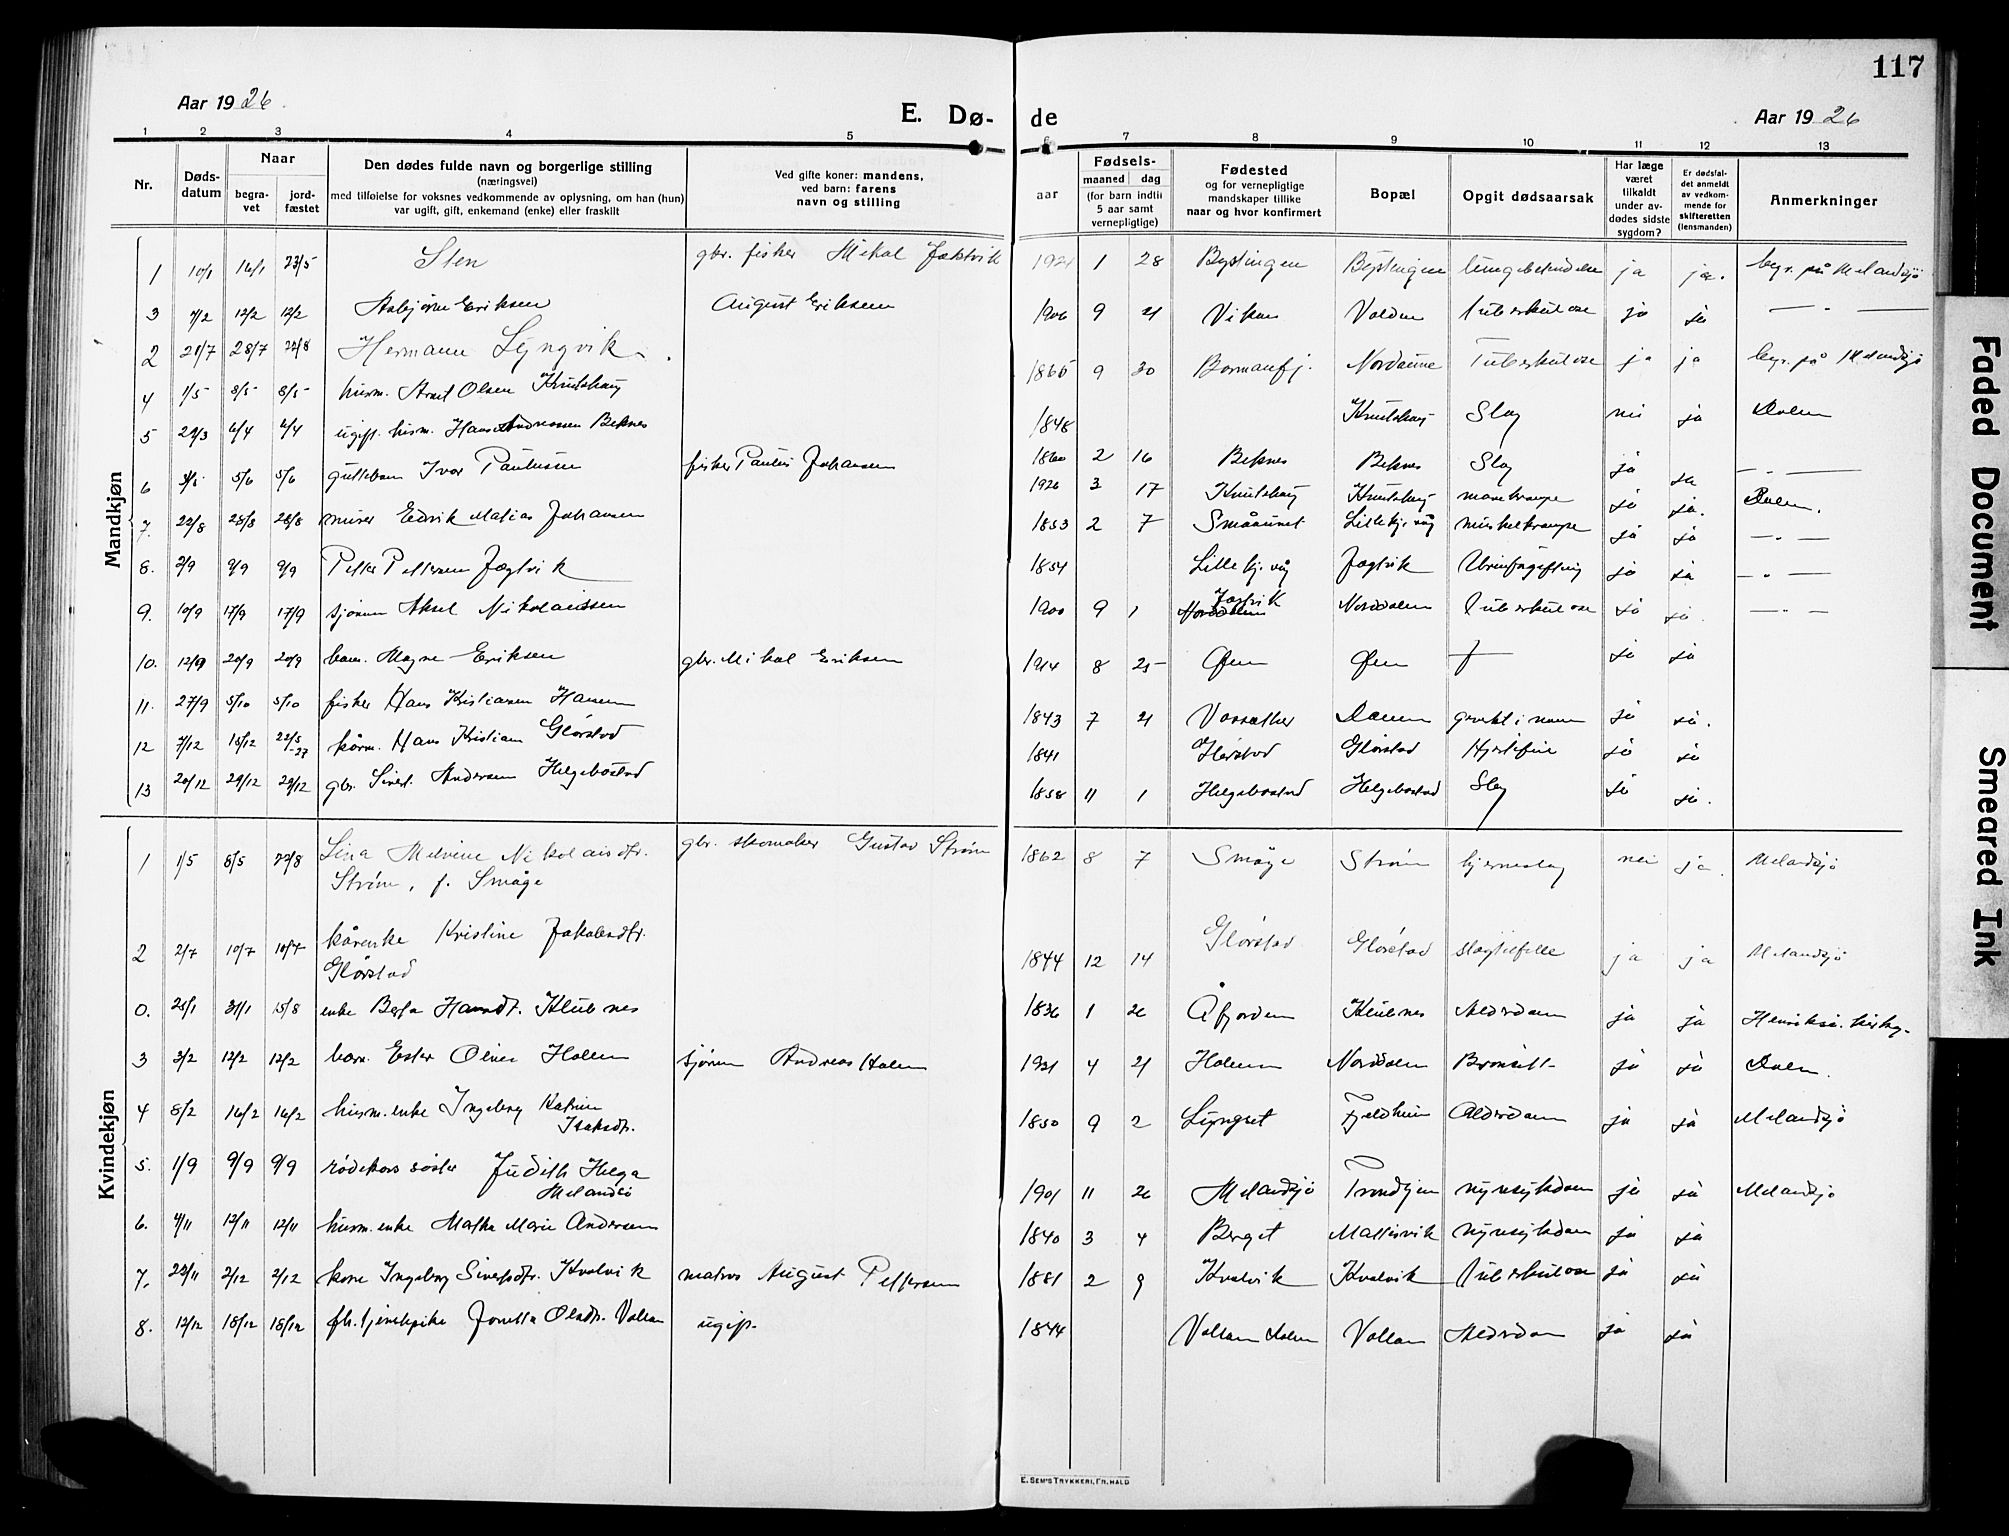 117
Aar 1926.
E. Dø-
de
Aar 1926
1 2 3 4 5 6 7 8 9 10 11 12 13
Nr.
Døds-
datum
Naar
begra-
vet
jord-
fæstet
Den dødes fulde navn og borgerlige stilling
(næringsvei)
med tilføielse for voksnes vedkommende av oplysning, om han (hun)
var ugift, gift, enkemand (enke) eller fraskilt
Ved gifte koner: mandens,
ved barn: farens
navn og stilling
aar
Fødsels-
maaned dag
(for barn indtil
5 aar samt
vernepligtige)
Fødested
og for vernepligtige
mandskaper tillike
naar og hvor konfirmert
Bopæl
Opgit dødsaarsak
Har læge
været
tilkaldt
under av-
dødes sidste
sygdom?
Er dødsfal-
det anmeldt
av vedkom-
mende for
skifteretten
(lensmanden)
Anmerkninger
Mandkjøn
1 10/1 16/1 23/5 Sten gbr. fisker Mikal Jektvik 1921 1 28 Bystingen Bystingen ja ja. begr. på Melandsjø
3 7/2 12/2 12/2 Asbjørn Eriksen August Eriksen 1906 9 21 Viken Tuberkulose ja ja — " —
2 21/7 28/7 22/8 Hermann Lyngvik 1865 9 30 Bormanfj. Tuberkulose ja ja begr. på Melandsjø
4 1/5 8/5 8/5 husm. Arnt Olsen Knutshaug 1848 Knutshaug Slag nei ja Dolm
5 29/3 6/4 6/4 ugift. husm. Hans Andreassen Beknes 1860 2 16 Beknes Beknes Slag ja ja — " —
6 5/6 5/6 guttebarn Ivar Paulussen fisker Paulus Johansen 1926 3 17 Knutshaug Knutshaug mavekrampe ja ja. Dolm.
7. 22/8 28/8 28/8 murer Edvik Matias Johansen 1853 2 7 Lillekjevåg muskelkrampe ja ja — " —
8. 2/9 9/9 9/9 Petter Pettersen Jægtvik 1854 Lillekjevåg Jægtvik Urinforgiftning ja ja — " —
9. 10/9 17/9 17/9 sjømn Aksel Nikolaissen 1900 9 1 Norddalen Jægtvik Norddalen Tuberkulose ja ja. — " —
10. 12/9 20/9 20/9 barn. Magne Eriksen gbr. Mikal Eriksen 1914 8 25 Øien Øien ja ja
11. 27/9 5/10 5/10 fisker Hans Kristiansen Hamn 1843 7 21 ja ja.
12 7/12 15/12 22/5-27 kårm. Hans Kristian Glørstad 1841 Glørstad Glørstad Hjertefeil ja ja
13 20/12 29/12 29/12 gbr. Sivert Andersen Helgebostad 1858 11 1 Helgebostad Helgebostad Slag ja ja.
Kvindekjøn
1 1/5 8/5 22/8 Lina Melvine Nikolaisdtr.
Strøm, f. Småge gbr. skomaker Gustav Strøm 1862 8 7 Småge Strøm hjerneslag nei ja. Melandsjø
2 2/7 10/7 10/7 kårenke Kristine Jakobsdtr.
Glørstad 1844 12 14 Glørstad Glørstad slagtilfelle ja ja Melandsjø
0. 25/1 31/1 15/8 enke Berta Hansdt. Klubnes 1836 1 26 Åfjorden Klubnes Alderdom ja ja
3 3/2 12/2 12/2 barn. Ester Oline Holm sjømn Andreas Holm 1921 4 21 Holmen Norddalen Bronkitt ja ja Dolm.
4 8/2 16/2 16/2 husm. enke Ingeborg Katrine
Isaksdtr. 1850 9 2 Lyngset Fjeldheim Alderdom ja ja Melandsjø
5. 1/9 9/9 9/9 rødekors søster Judith Helga
Melandsø 1901 11 26 Melandsjø Trondhjem nyresykdom ja ja Melandsjø
6. 4/11 12/11 12/11 husm. enke Malka Marie Andersen 1840 3 4 Berget Mallisvik nyresykdom ja ja
7. 22/11 2/12 2/12 kone Ingeborg Sivertsdtr. Kvalvik matros August Pettersen 1881 2 9 Kvalvik Kvalvik Tuberkulose ja ja
8. 12/12 18/12 18/12 fh. tjenestepike Jonetta Olsdtr. Vollan ugift. 1844 Vollan Dolm Vollan Alderdom ja ja
E. SEM'S TRYKKERI, FR.HALD
Faded Document
Smeared Ink